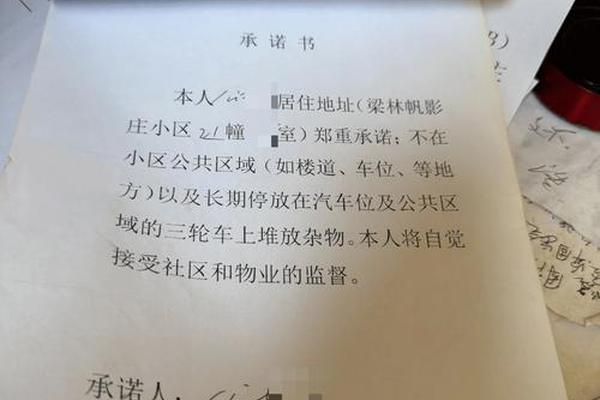 承诺书
本人 居住地址(梁林帆影
庄小区21幢 室)郑重承诺:不在
小区公共区域(如楼道、车位、等地
方)以及长期停放在汽车位及公共区
域的三轮车上堆放杂物。本人将自觉
接受社区和物业的监督。
承诺人: